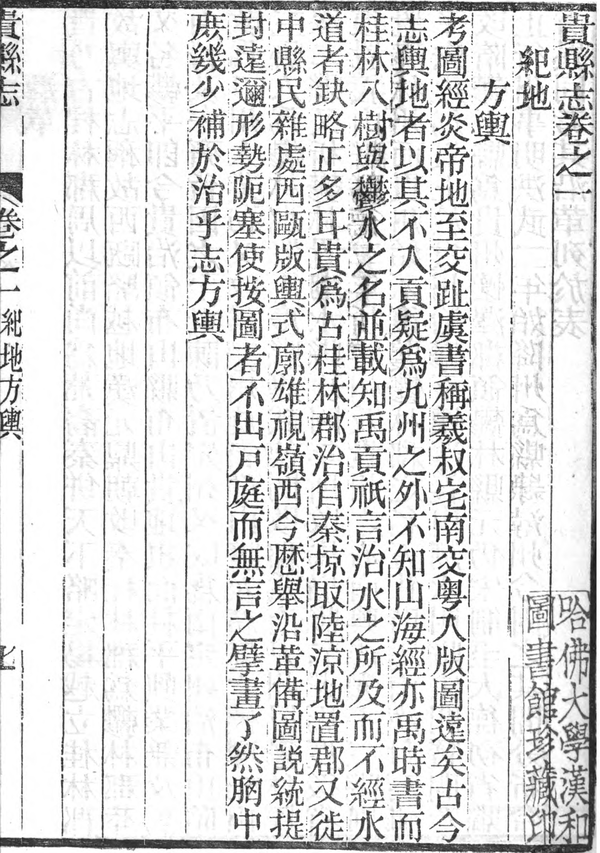 貴縣志卷之一
紀地
方輿
考圖經炎帝地至交趾虞書稱羲叔宅南交粵入版圖遠矣古今
志輿地者以其不入貢疑爲九州之外不知山海經亦禹時書而
桂林八樹與鬱水之名並載知禹貢祇言治水之所及而不經水
道者缺略正多耳貴爲古桂林郡治自秦掠取陸涼地置郡又徙
中縣民雜處西甌版輿式廓雄視嶺西今歷舉沿革備圖說統提
封遠邇形勢阨塞使按圖者不出戶庭而無言之擘畫了然胸中
庶幾少補於治乎志方輿
貴縣志
卷之一 紀地方輿
哈佛大學漢和
圖書館珍藏印